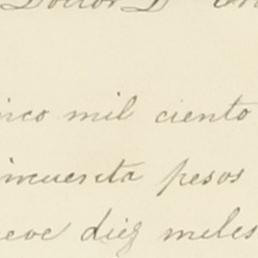 Doctor D
inco mil ciento
incuenta pesos
eve diez miles